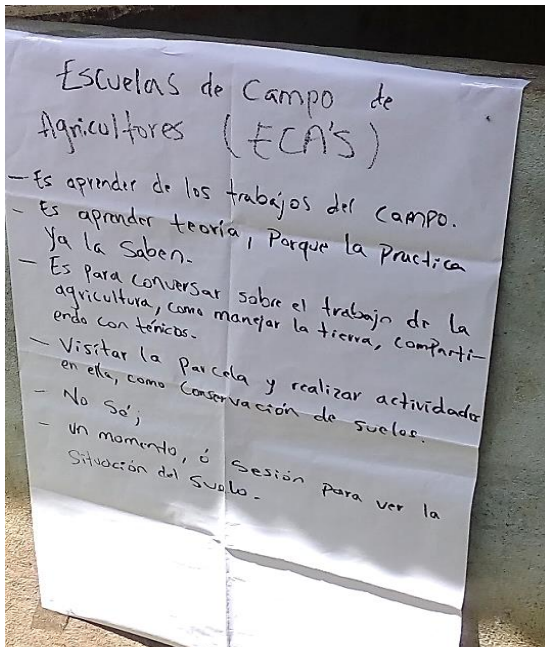 Escuelas de Campo de
Agricultores (ECA'S)
- Es aprender de los trabajos del campo.
- Es aprender teoría, Porque la Practica
Ya la Saben.
- Es Para conversar sobre el trabajo de la
agricultura, como manejar la tierra, comparti-
endo con ténicos.
- Visitar la Parcela y realizar actividades
en ella, como Conservación de suelos.
- No Sé;
- un momento, ó Sesión Para ver la
Situación del Suelo.